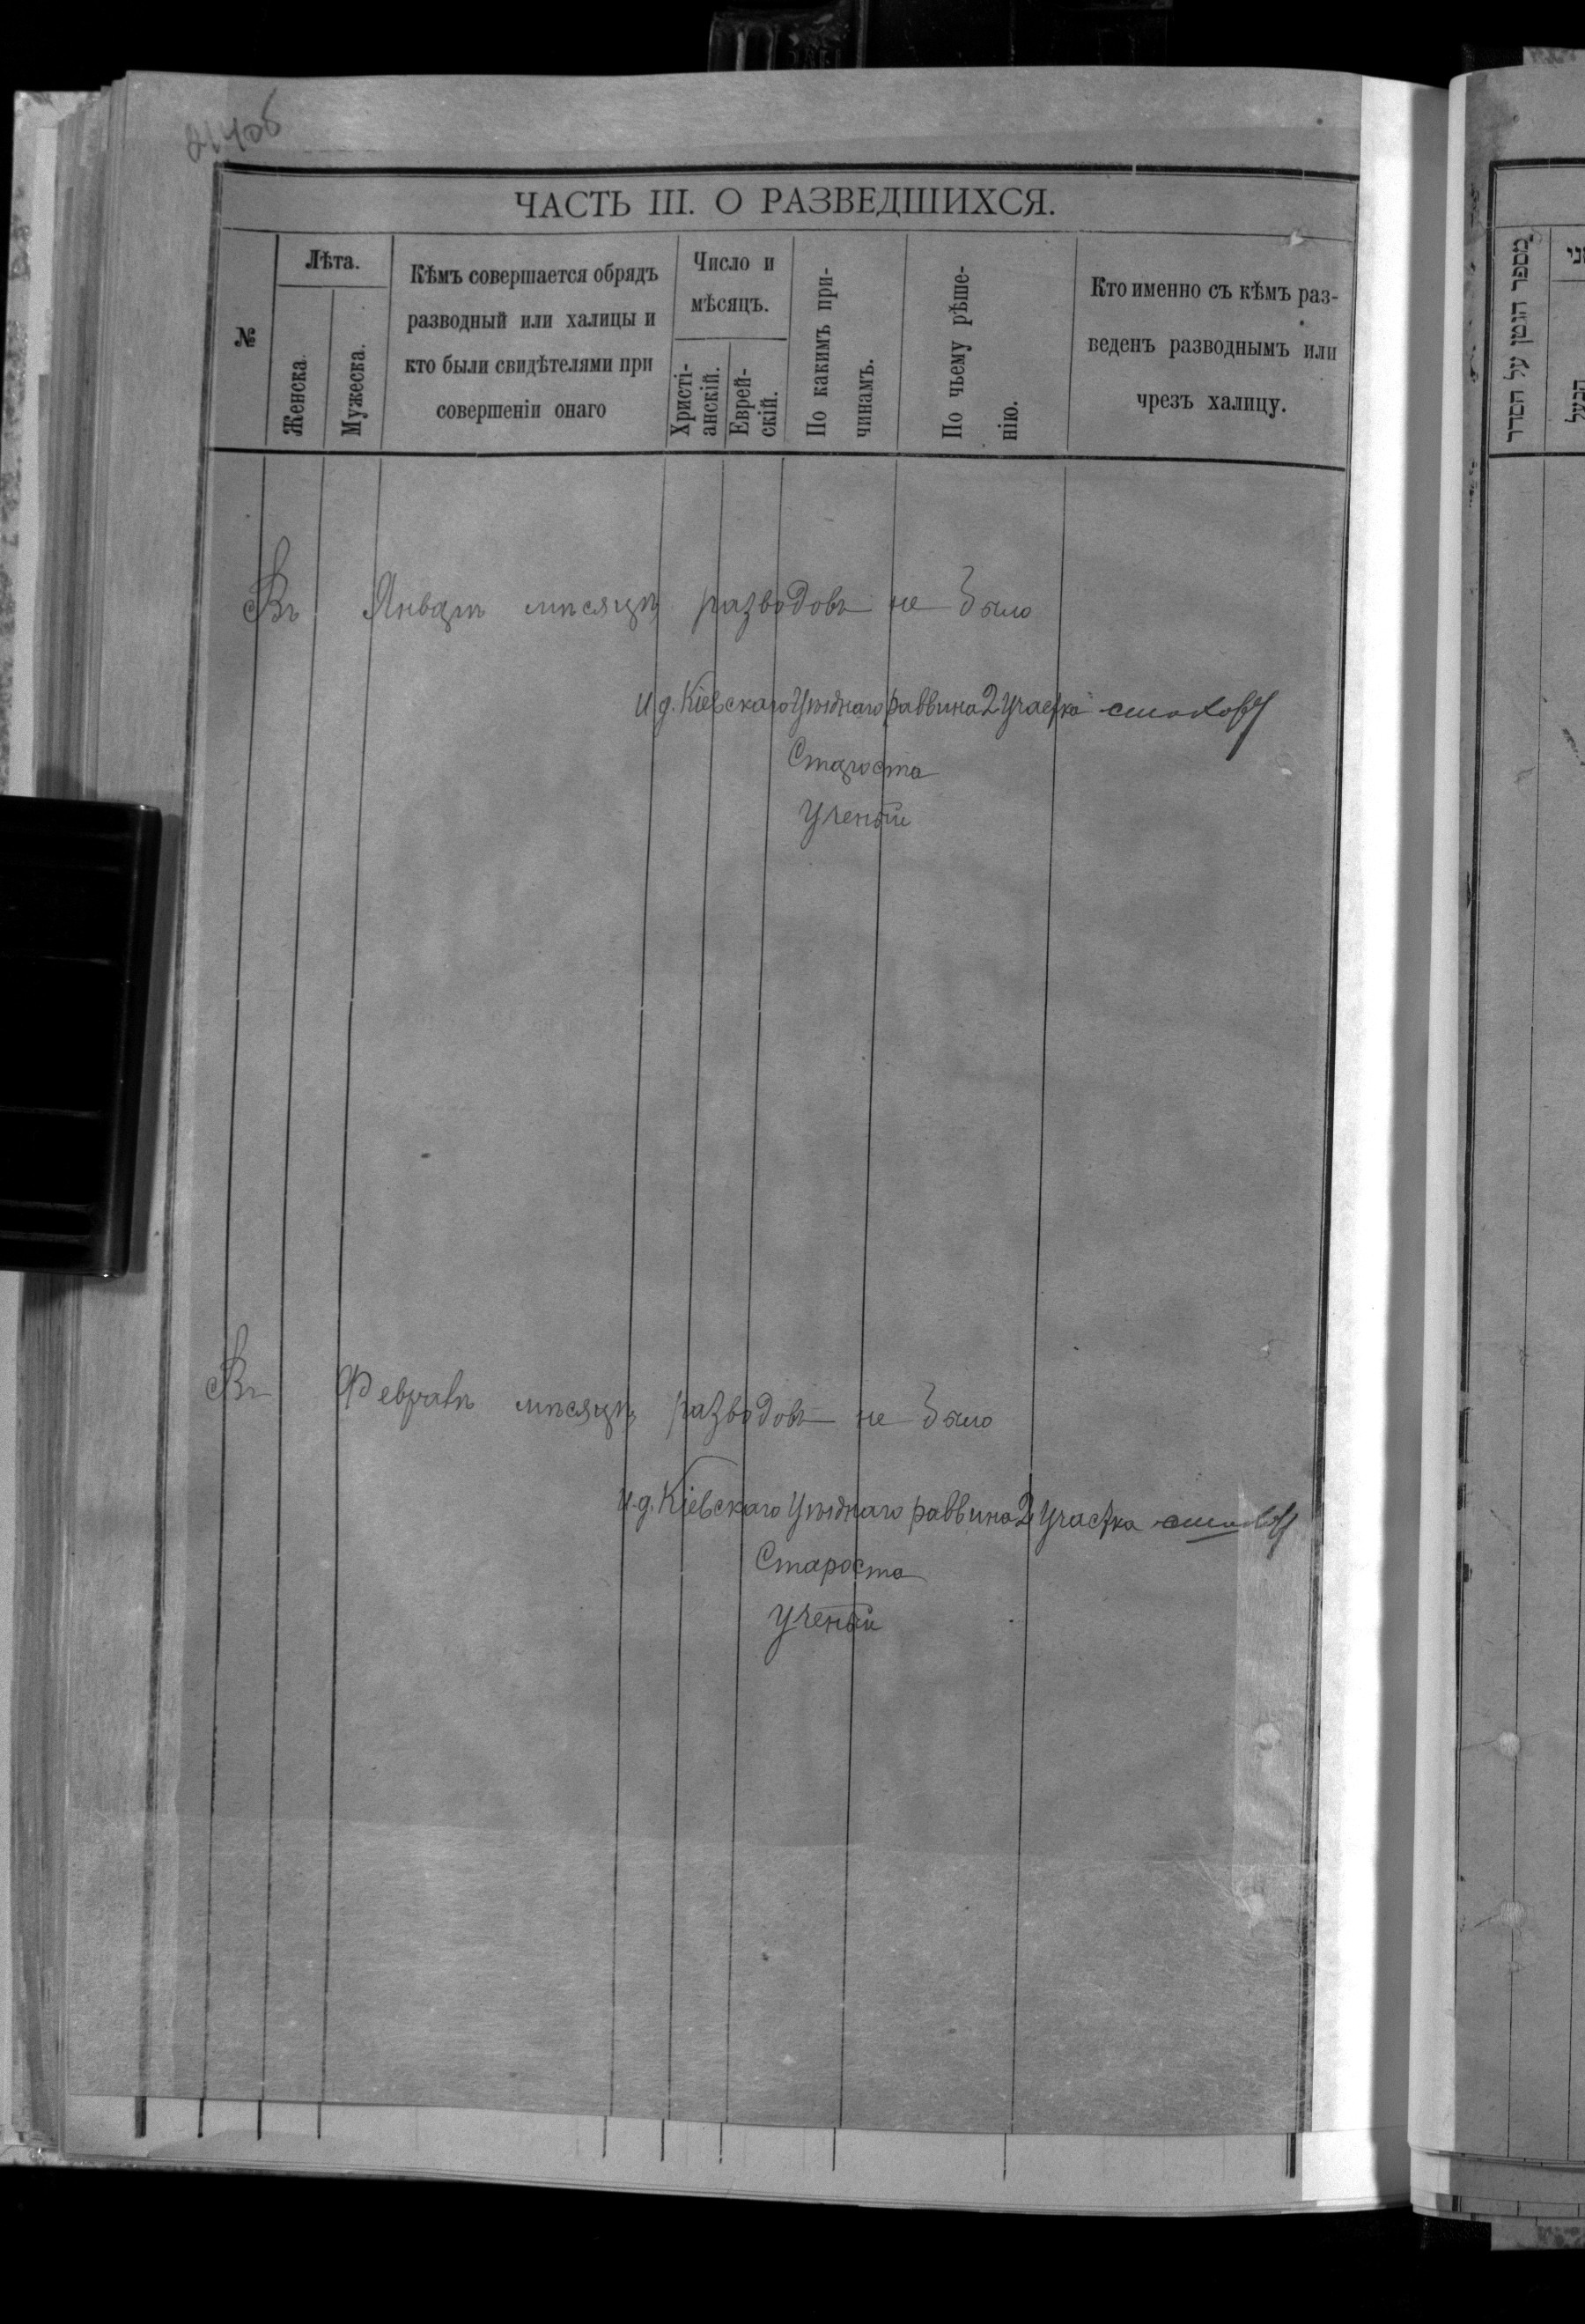 214об
ЧАСТЬ III. О РАЗВЕДШИХСЯ.
№
Лѣта.
Женска.
Мужеска.
Кѣмъ совершается обрядъ
разводный или халицы и
кто были свидѣтелями при
совершеніи онаго
Число и
мѣсяцъ.
Христі-
анскій.
Еврей-
скій.
По какимъ при-
чинамъ.
По чьему рѣше-
нію.
Кто именно съ кѣмъ раз-
веденъ разводнымъ или
чрезъ халицу.
Въ Январѣ мѣсяцѣ разводовъ не было
И д. Кіевскаго Уѣзднаго раввина 2 Участка
Староста
Ученый
Въ Февралѣ мѣсяцѣ разводовъ не было
И. д. Кіевскаго Уѣзднаго раввина 2 Участка
Староста
Ученый
מספר הגטין על הסדר
הבעל